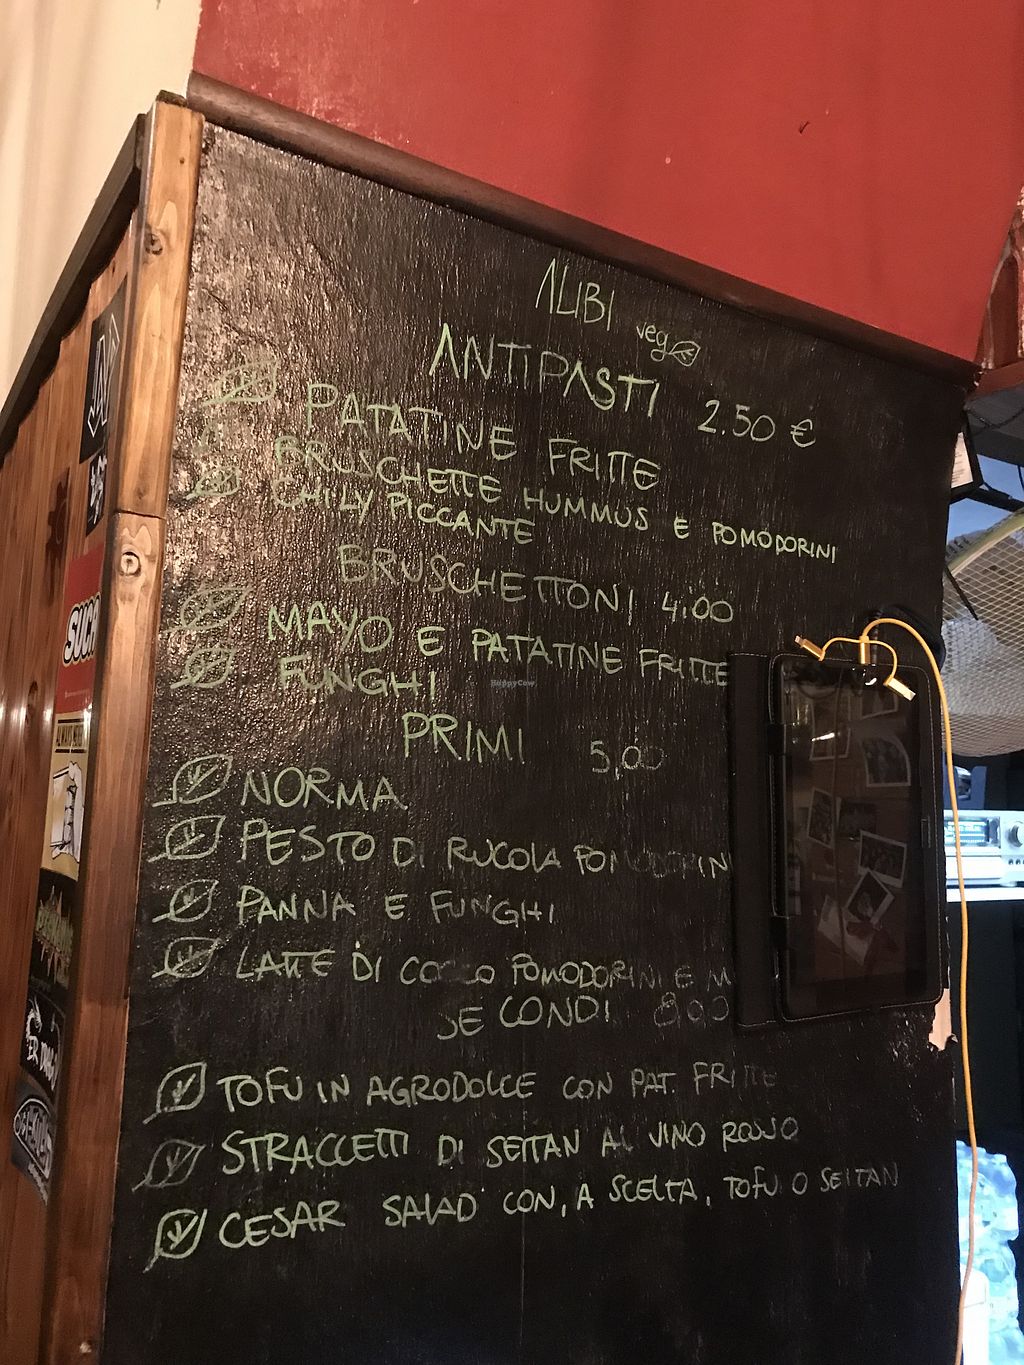 ALIBI veg
ANTIPASTI 2.50 €
PATATINE FRITTE
BRUSCHETTE HUMMUS E POMODORINI
CHILY PICCANTE
BRUSCHETTONI 4.00
MAYO E PATATINE FRITTE
FUNGHI
HappyCow
PRIMI 5,00
NORMA
PESTO DI RUCOLA POMODORIN
PANNA E FUNGHI
LATTE DI COCCO POMODORINI E M
SECONDI 8.00
TOFU IN AGRODOLCE CON PAT. FRITTE
STRACCETTI DI SEITAN AL VINO ROSSO
CESAR SALAD CON, A SCELTA, TOFU O SEITAN
SUCA